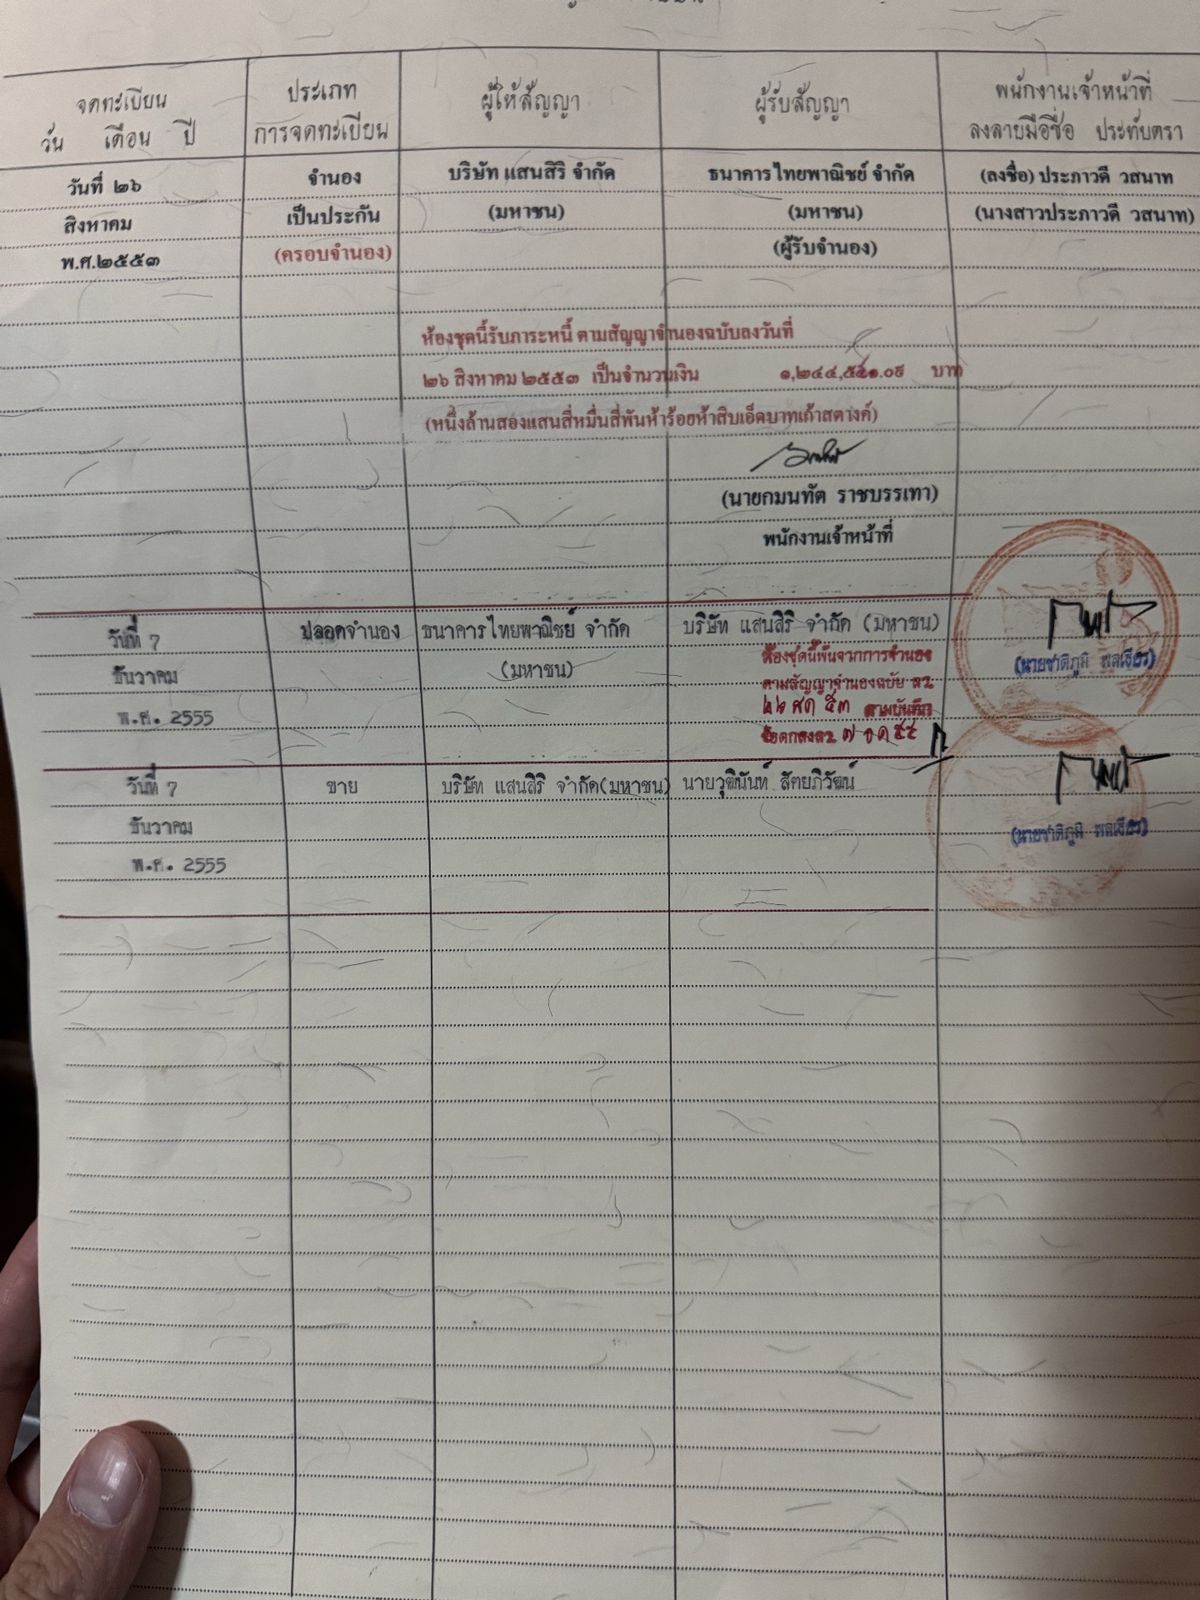 จดทะเบียน
วัน เดือน ปี
ประเภท
การจดทะเบียน
ผู้ให้สัญญา
ผู้รับสัญญา
พนักงานเจ้าหน้าที่
ลงลายมือชื่อ ประทับตรา
วันที่ ๒๖ จำนอง บริษัท แสนสิริ จำกัด ธนาคารไทยพาณิชย์ จำกัด (ลงชื่อ) ประภาวดี วสนาท
สิงหาคม เป็นประกัน (มหาชน) (มหาชน) (นางสาวประภาวดี วสนาท)
พ.ศ.๒๕๕๓ (ครอบจำนอง) (ผู้รับจำนอง)
ห้องชุดนี้รับภาระหนี้ ตามสัญญาจำนองฉบับลงวันที่
๒๖ สิงหาคม ๒๕๕๓ เป็นจำนวนเงิน ๑,๒๔๔,๕๕๑.๐๙ บาท
(หนึ่งล้านสองแสนสี่หมื่นสี่พันห้าร้อยห้าสิบเอ็ดบาทเก้าสตางค์)
(นายกมนทัต ราชบรรเทา)
พนักงานเจ้าหน้าที่
วันที่ 7 ปลอดจำนอง ธนาคารไทยพาณิชย์ จำกัด บริษัท แสนสิริ จำกัด (มหาชน)
ธันวาคม (มหาชน) ห้องชุดนี้พ้นจากการจำนอง
ตามสัญญาจำนองฉบับ ลว
พ.ศ. 2555 ๒๖ สค ๕๓ ตามบันทึก
ข้อตกลงลว ๗ ธค ๕๕
(นายชาติภูมิ)
วันที่ 7 ขาย บริษัท แสนสิริ จำกัด(มหาชน) นายวุฒินันท์ สัตยภิวัฒน์
ธันวาคม (นายชาติภูมิ)
พ.ศ. 2555